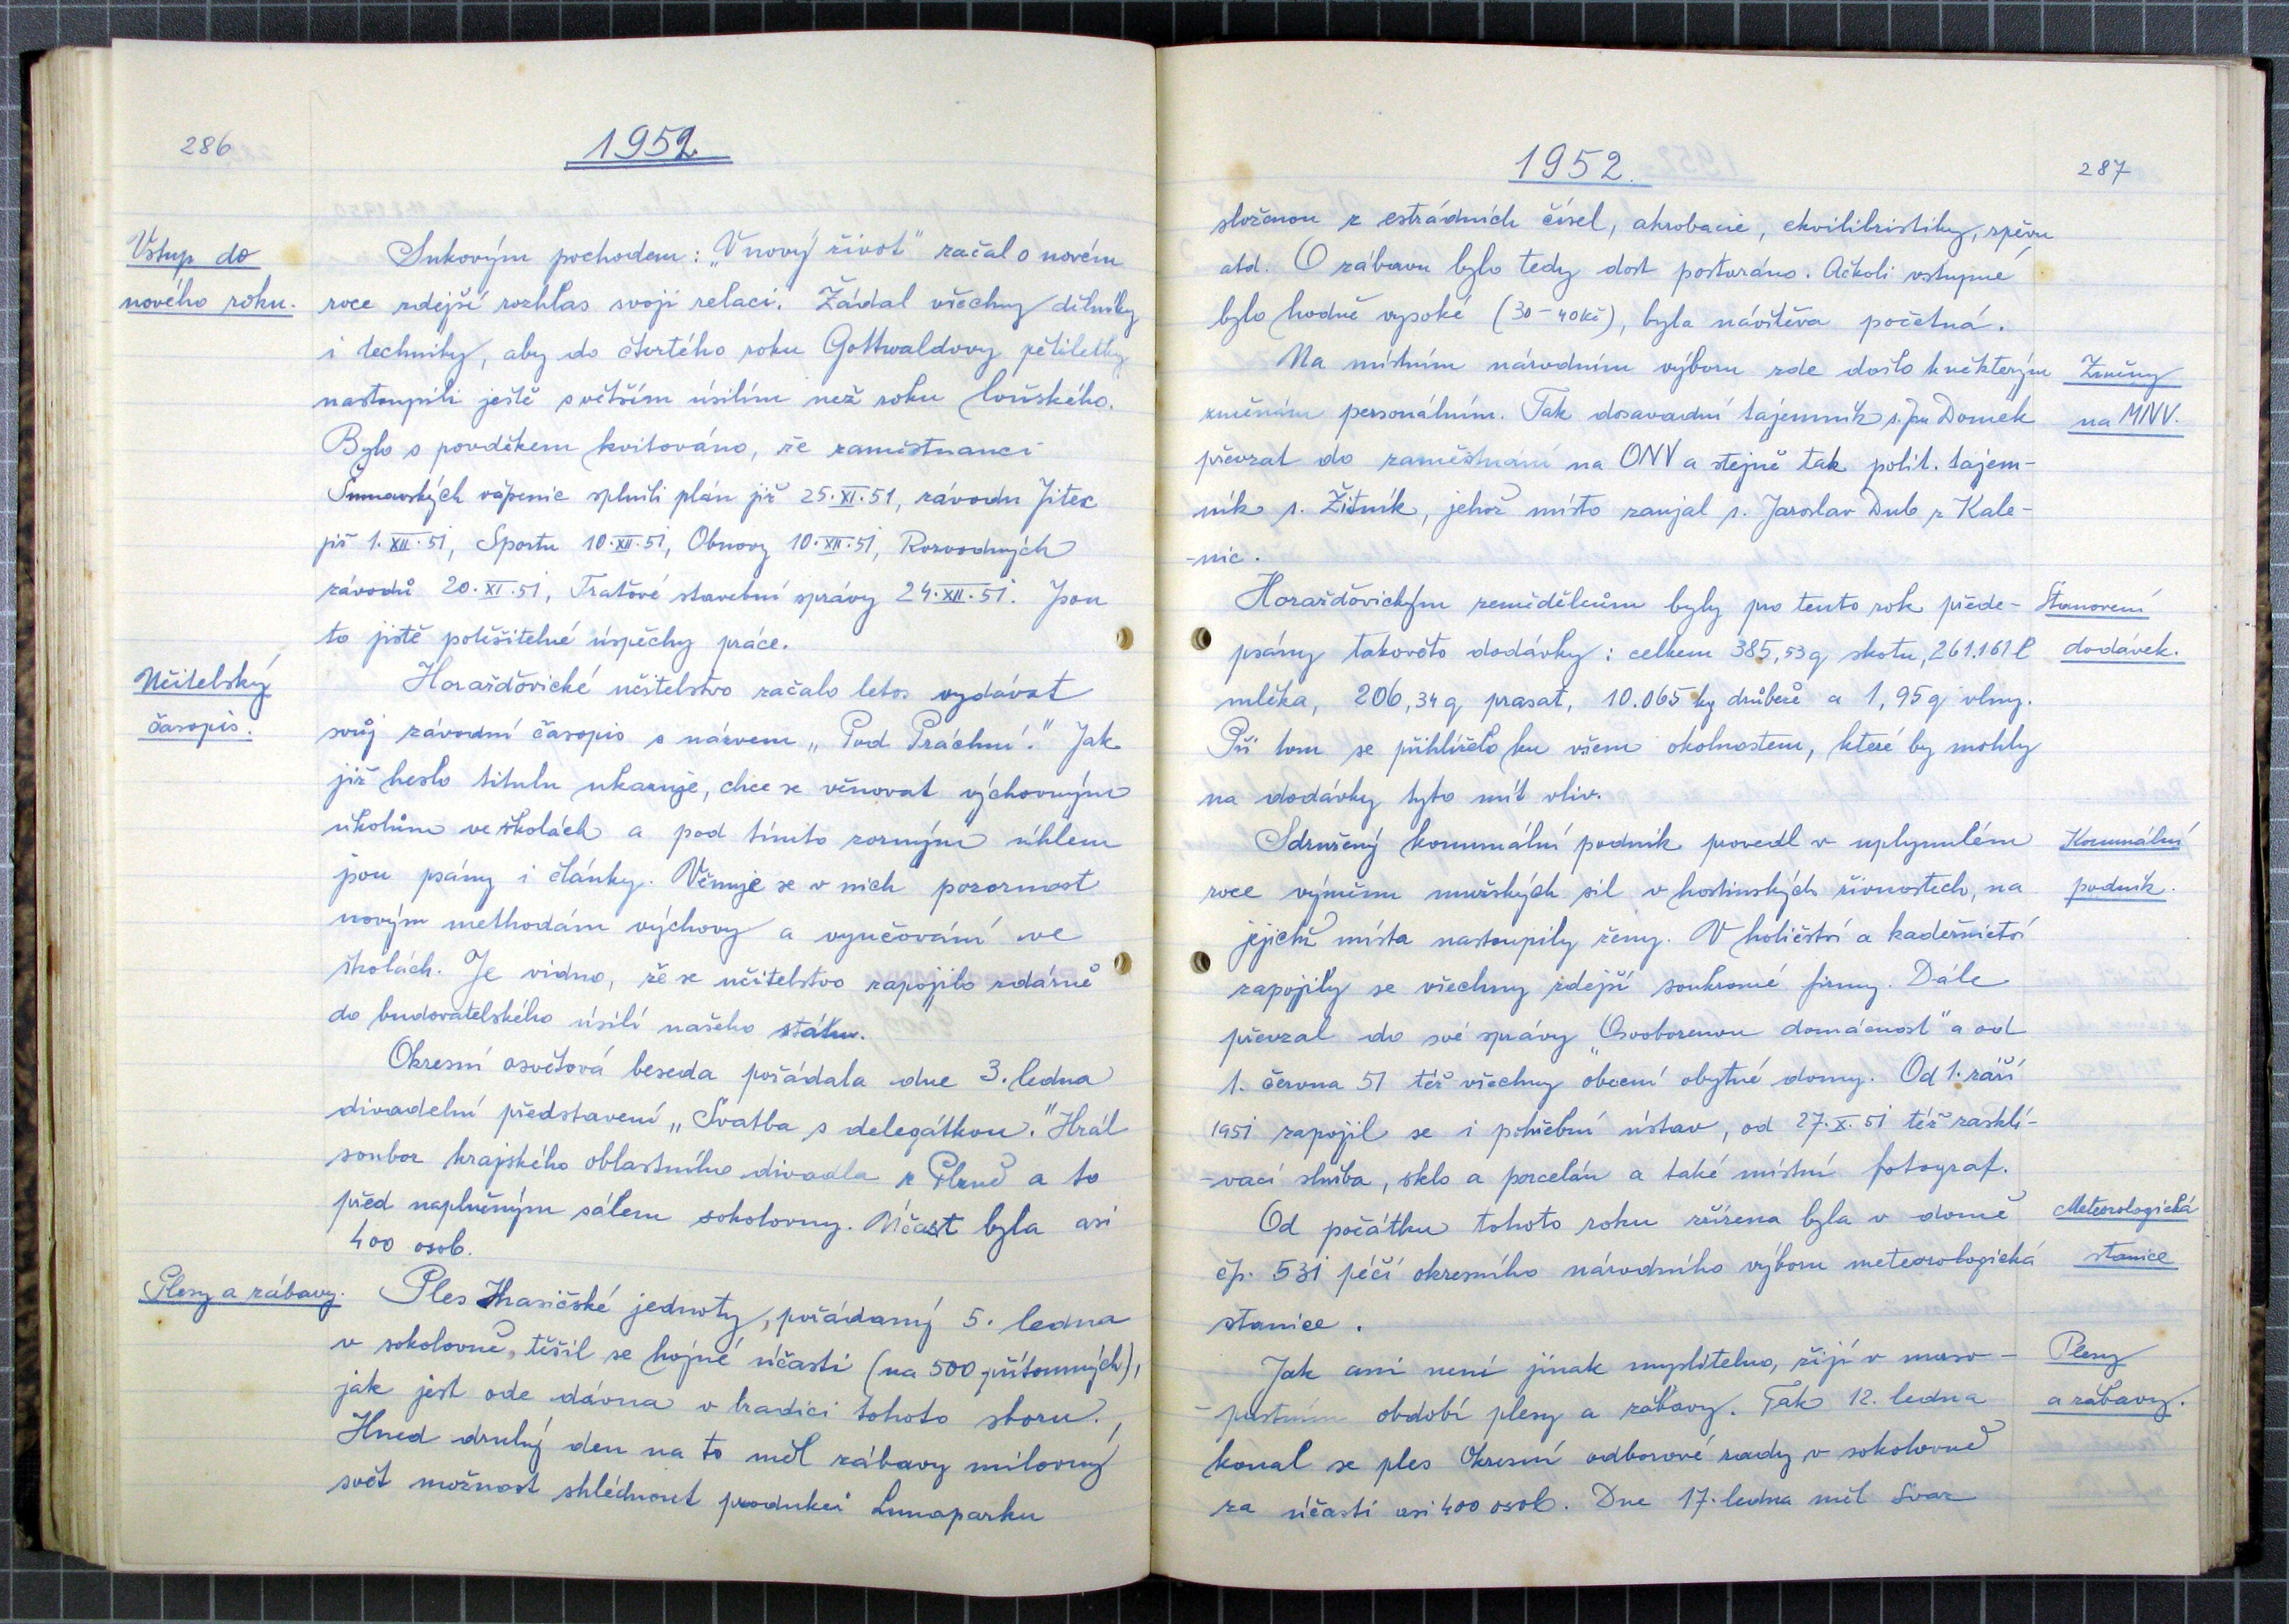 286
1952.
Vstup do
nového roku.
Sukovým pochodem: „V nový život" začal o novém
roce zdejší rozhlas svoji relaci. Žádal všechny dělníky
i techniky, aby do čtvrtého roku Gottwaldovy pětiletky
nastoupili ještě s větším úsilím než roku loňského.
Bylo s povděkem kvitováno, že zaměstnanci
Šumavských vápenic splnili plán již 25.XI.51, závodu Jitex
již 1.XII.51, Sportu 10.XII.51, Obnovy 10.XII.51, Rozvodných
závodů 20.XI.51, Traťové stavební správy 24.XII.51. Jsou
to jistě potěšitelné úspěchy práce.
Učitelský
časopis.
Horažďovické učitelstvo začalo letos vydávat
svůj závodní časopis s názvem „Pod Práchní." Jak
již heslo titulu ukazuje, chce se věnovat výchovným
úkolům ve školách a pod tímto zorným úhlem
jsou psány i články. Věnuje se v nich pozornost
novým methodám výchovy a vyučování ve
školách. Je vidno, že se učitelstvo zapojilo zdárně
do budovatelského úsilí našeho státu.
Okresní osvětová beseda pořádala dne 3. ledna
divadelní představení „Svatba s delegátkou." Hrál
soubor krajského oblastního divadla z Plzně a to
před naplněným sálem sokolovny. Účast byla asi
400 osob.
Plesy a zábavy.
Ples Hasičské jednoty, pořádaný 5. ledna
v sokolovně, těšil se hojné účasti (na 500 přítomných),
jak jest ode dávna v tradici tohoto sboru.
Hned druhý den na to měl zábavy milovný
svět možnost shlédnout produkci Lunaparku
1952.
287
složenou z estrádních čísel, akrobacie, ekvilibristiky, zpěvu
atd. O zábavu bylo tedy dost postaráno. Ačkoli vstupné
bylo hodně vysoké (30-40 Kč), byla návštěva početná.
Na místním národním výboru zde došlo k některým
změnám personálním. Tak dosavadní tajemník s. Jan Domek
převzat do zaměstnání na ONV a stejně tak polit. tajem-
ník s. Žitník, jehož místo zaujal s. Jaroslav Dub z Kale-
-nic.
Změny
na MNV.
Horažďovickým zemědělcům byly pro tento rok přede-
psány takovéto dodávky: celkem 385,53 q skotu, 261.161 l
mléka, 206,34 q prasat, 10.065 kg drůbeže a 1,95 q vlny.
Při tom se přihlíželo ku všem okolnostem, které by mohly
na dodávky tyto mít vliv.
Stanovení
dodávek.
Sdružený komunální podnik provedl v uplynulém
roce výměnu mužských sil v hostinských živnostech, na
jejichž místa nastoupily ženy. V holičství a kadeřnictví
zapojily se všechny zdejší soukromé firmy. Dále
převzal do své správy „Osvobozenou domácnost" a od
1. června 51 též všechny obecní obytné domy. Od 1. září
1951 zapojil se i pohřební ústav, od 27.X.51 též zasklí-
-vací služba, sklo a porcelán a také místní fotograf.
Komunální
podnik.
Od počátku tohoto roku zřízena byla v domě
čp. 531 péčí okresního národního výboru meteorologická
stanice.
Meteorologická
stanice
Jak ani není jinak myslitelno, žijí v maso-
-pustním období plesy a zábavy. Tak 12. ledna
konal se ples Okresní odborové rady v sokolovně
za účasti asi 400 osob. Dne 17. ledna měl Svaz
Plesy
a zábavy.